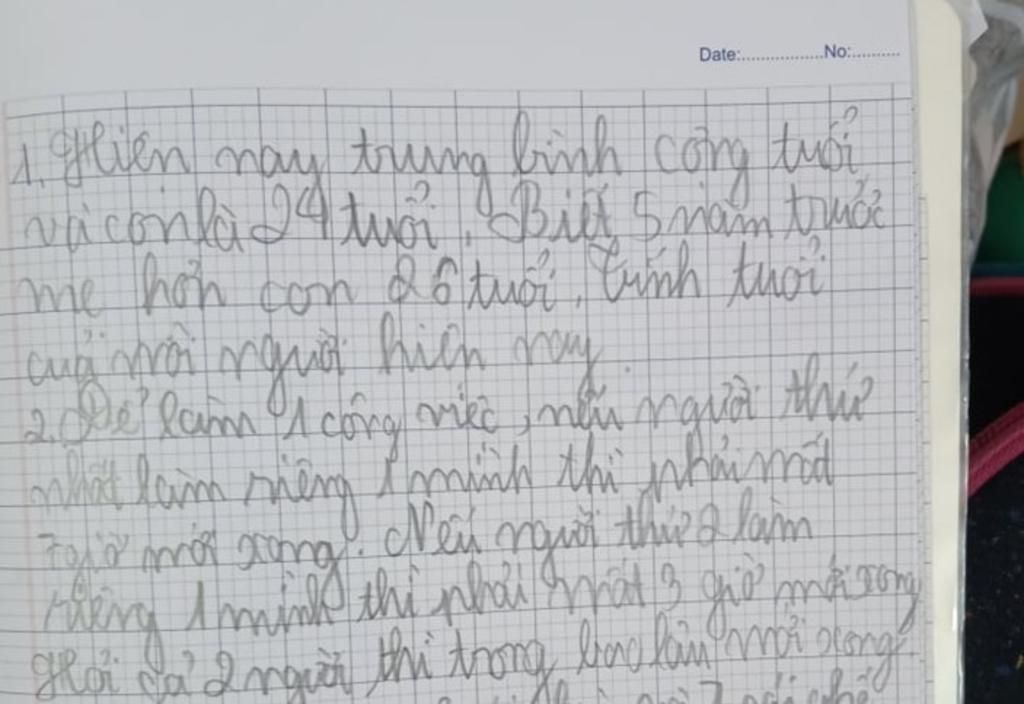 Date:.................No:..........
1. Hiện nay trung bình cộng tuổi
và con là 24 tuổi. Biết 5 năm trước
mẹ hơn con 26 tuổi. Tính tuổi
của mỗi người hiện nay.
2. Để làm 1 công việc, nếu người thứ
nhất làm riêng 1 mình thì phải mất
7 giờ mới xong. Nếu người thứ 2 làm
riêng 1 mình thì phải mất 3 giờ mới xong
Hỏi cả 2 người thì trong bao lâu mới xong